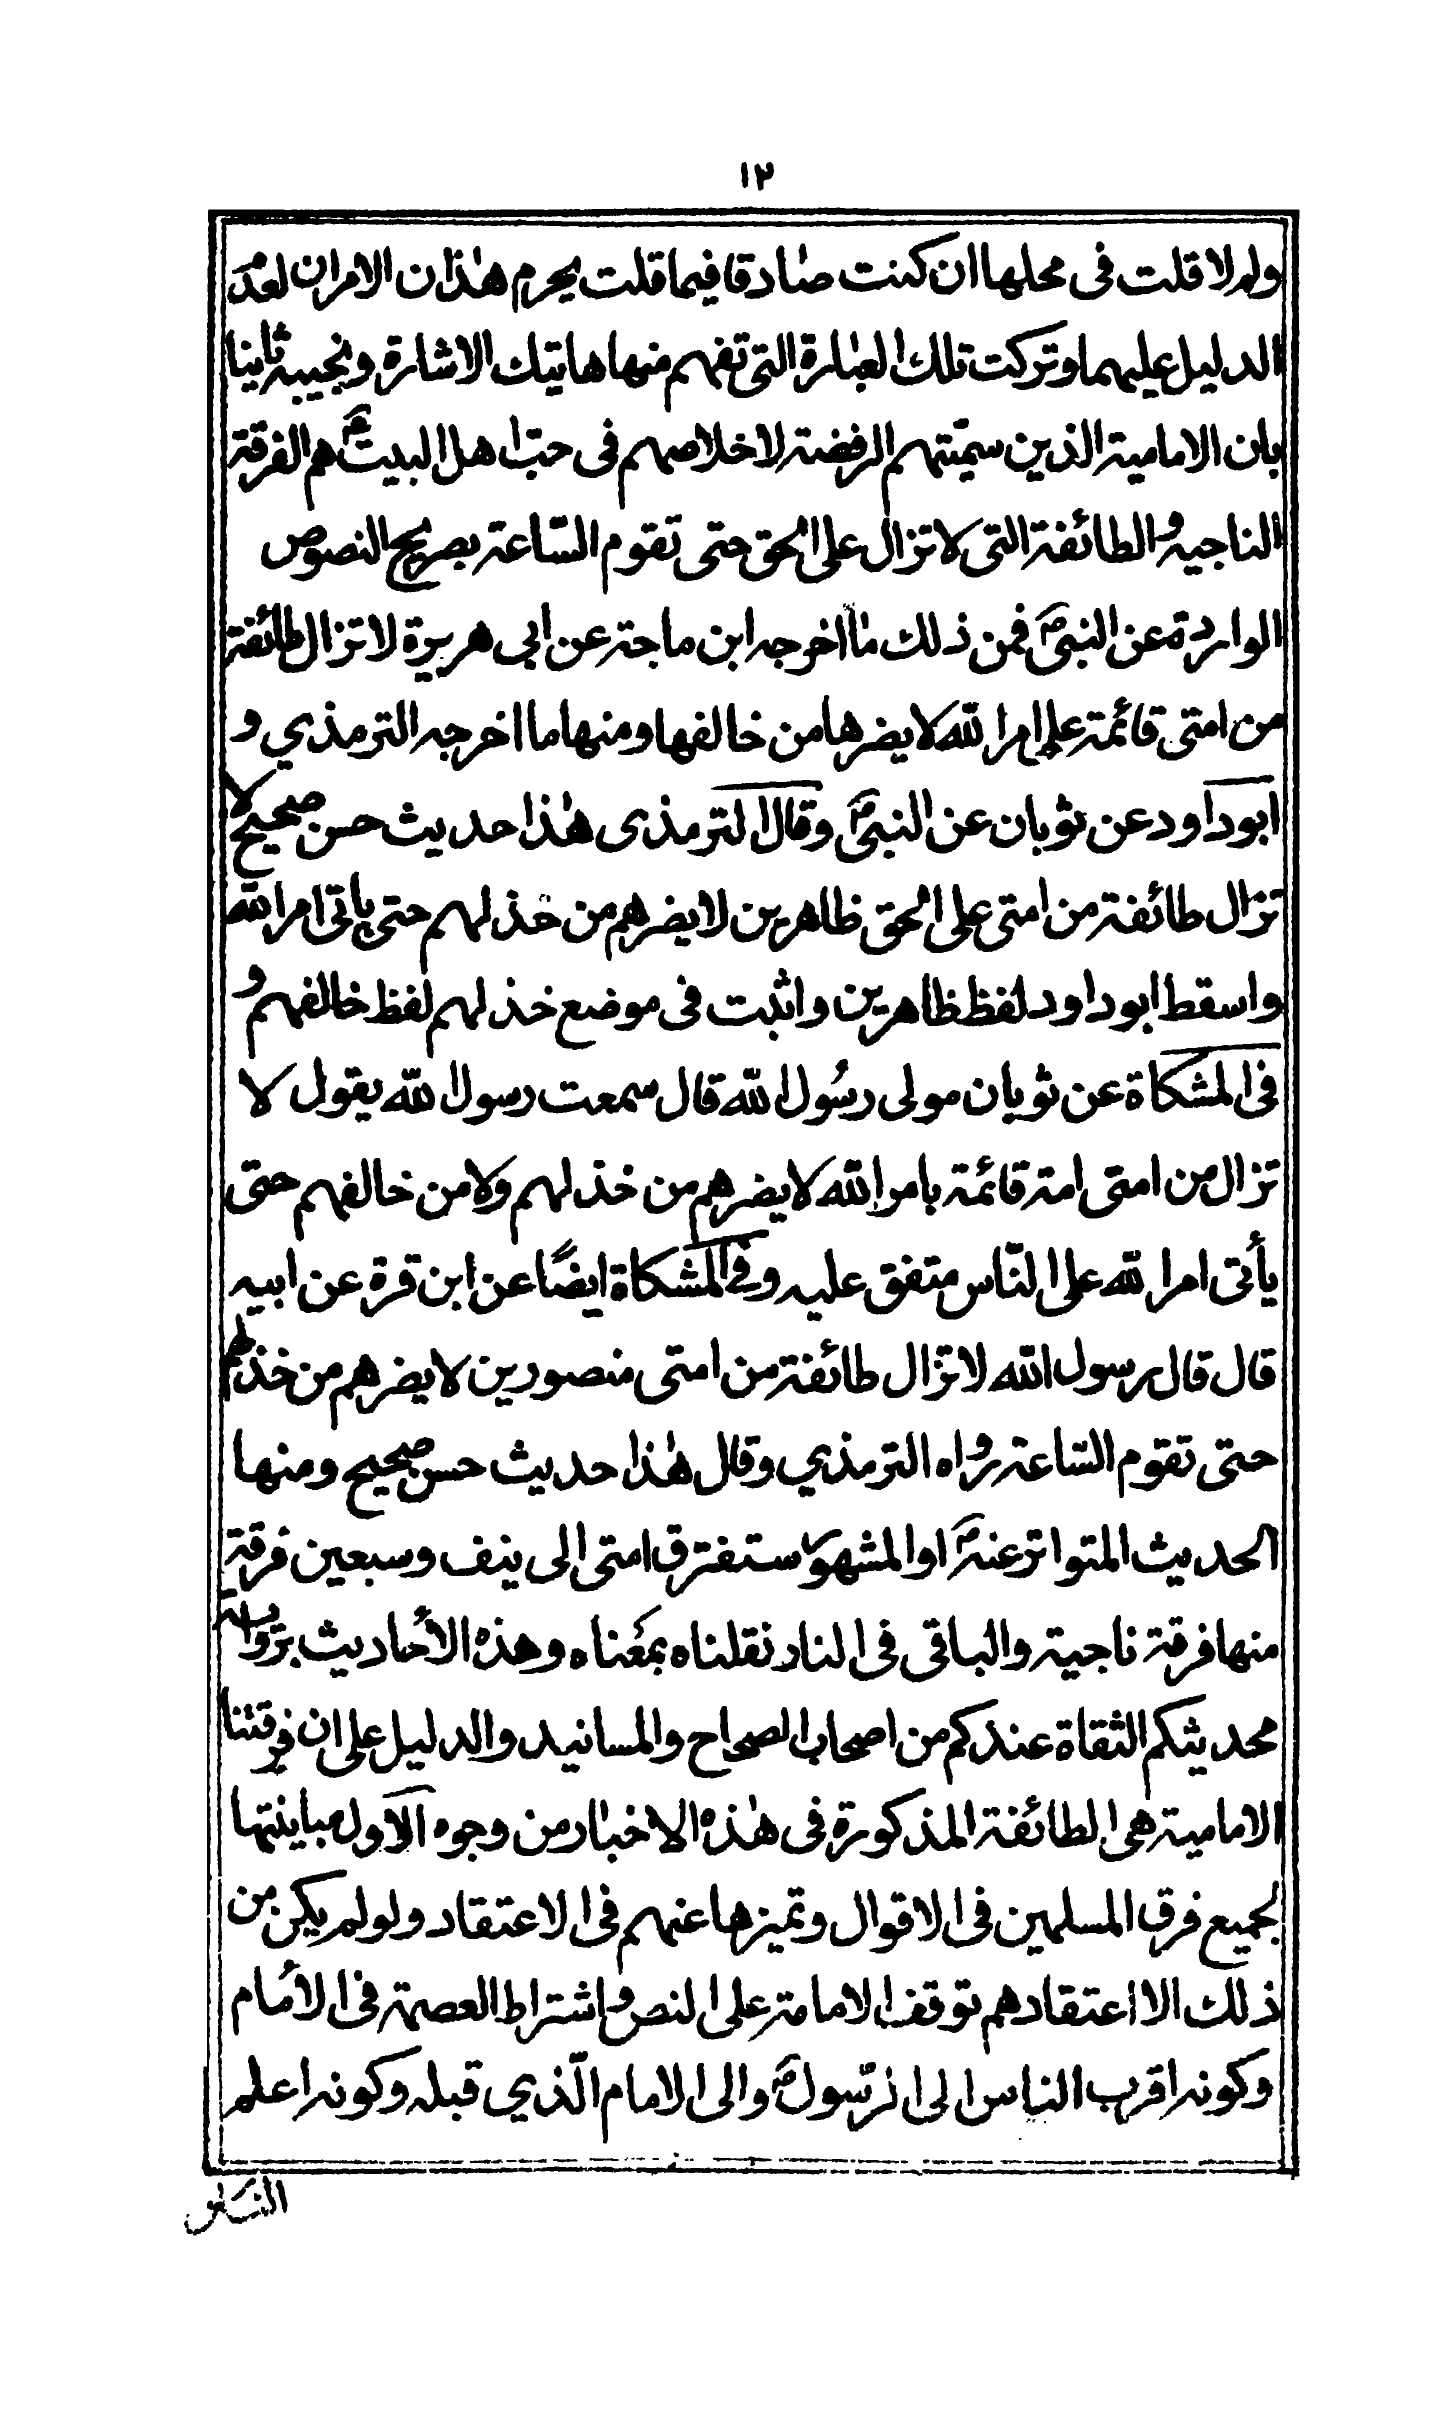 ١٢
ولم لا قلت فى محلها ان كنت صادقا فيما قلت يحرم هذان الامران لعدم
الدليل عليهما وتركت تلك العبارة التى تفهم منها هاتيك الاشارة ونجيبه ثانيا
بان الامامية الذين سميتهم الرفضة لاخلاصهم فى حب اهل البيتؑ هم الفرقة
الناجيه والطائفة التى لا تزال على الحق حتى تقوم الساعة بصريح النصوص
الواردة عن النبىؐ فمن ذلك ما اخرجه ابن ماجة عن ابى هريرة لا تزال طائفة
من امتى قائمة على امر الله لا يضرها من خالفها ومنها ما اخرجه الترمذي و
ابوداود عن ثوبان عن النبىؐ وقال الترمذى هٰذا حديث حسن صحيح لا
تزال طائفة من امتى على الحق ظاهرين لا يضرهم من خذلهم حتى ياتى امر الله
واسقط ابوداود لفظ ظاهرين واثبت فى موضع خذلهم لفظ خالفهم و
فى المشكاة عن ثوبان مولى رسُول الله قال سمعت رسول الله يقول لا
تزال من امتى امة قائمة بامر الله لا يضرهم من خذلهم ولا من خالفهم حتى
يأتى امر الله على النّاس متفق عليه وفى المشكاة ايضًا عن ابن قرة عن ابيه
قال قال رسول الله لا تزال طائفة من امتى منصورين لا يضرهم من خذلهم
حتى تقوم السّاعة رواه الترمذي وقال هٰذا حديث حسن صحيح ومنها
الحديث المتواتر عنهؐ او المشهور ستفترق امتى الى ينف وسبعين فرقة
منها فرقة ناجية والباقى فى النار نقلناه بمعناه وهذه الأحاديث برواية
محديثكم الثقاة عندكم من اصحاب الصحاح والمسانيد والدليل على ان فرقتنا
الامامية هى الطائفة المذكورة فى هٰذه الاخبار من وجوه الاول مباينتها
لجميع فرق المسلمين فى الاقوال وتميزها عنهم فى الاعتقاد ولو لم يكن من
ذلك الا اعتقادهم توقف الامامة على النص واشتراط العصمة فى الأمام
وكونه اقرب الناس الى الرّسولؐ والى الامام الّذي قبله وكونه اعلم
الناس